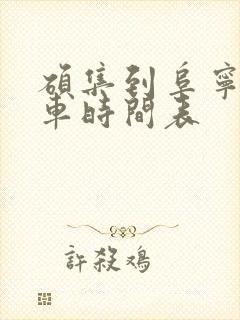 碩集到阜寧
車時間表
許殺鴉